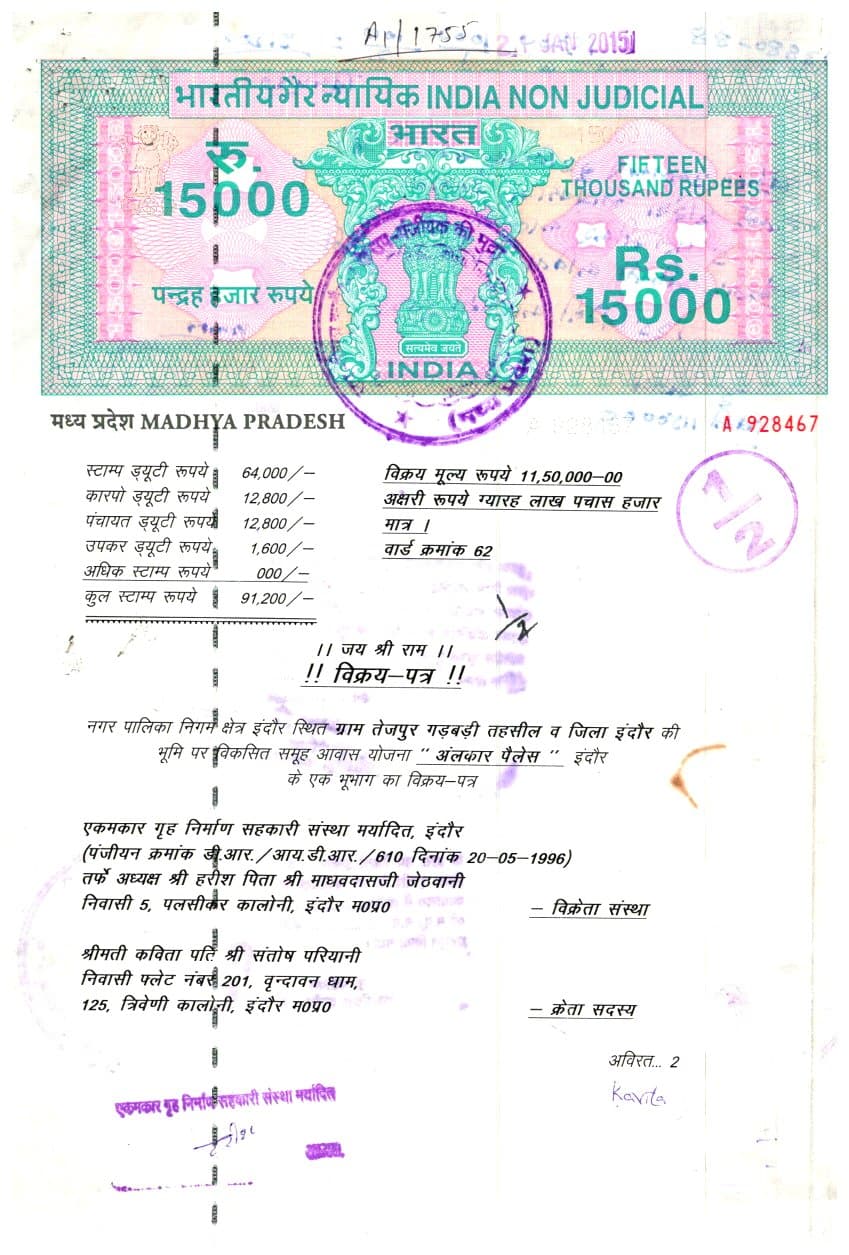 A1/1755
2 JAN 2015
भारतीय गैर न्यायिक INDIA NON JUDICIAL
भारत
रु.
15000
FIFTEEN
THOUSAND RUPEES
पन्द्रह हजार रुपये
Rs.
15000
सत्यमेव जयते
INDIA
मध्य प्रदेश MADHYA PRADESH
A 928467
स्टाम्प ड्यूटी रूपये 64,000/–
कारपो ड्यूटी रूपये 12,800/–
पंचायत ड्यूटी रूपये 12,800/–
उपकर ड्यूटी रूपये 1,600/–
अधिक स्टाम्प रूपये 000/–
कुल स्टाम्प रूपये 91,200/–
विक्रय मूल्य रूपये 11,50,000–00
अक्षरी रूपये ग्यारह लाख पचास हजार
मात्र ।
वार्ड क्रमांक 62
1/2
1/2
।। जय श्री राम ।।
!! विक्रय–पत्र !!
नगर पालिका निगम क्षेत्र इंदौर स्थित ग्राम तेजपुर गड़बड़ी तहसील व जिला इंदौर की
भूमि पर विकसित समूह आवास योजना '' अंलकार पैलेस '' इंदौर
के एक भूभाग का विक्रय–पत्र
एकमकार गृह निर्माण सहकारी संस्था मर्यादित, इंदौर
(पंजीयन क्रमांक डी.आर./आय.डी.आर./610 दिनांक 20–05–1996)
तर्फे अध्यक्ष श्री हरीश पिता श्री माधवदासजी जेठवानी
निवासी 5, पलसीकर कालोनी, इंदौर म0प्र0 – विक्रेता संस्था
श्रीमती कविता पति श्री संतोष परियानी
निवासी फ्लेट नंबर 201, वृन्दावन धाम,
125, त्रिवेणी कालोनी, इंदौर म0प्र0 – क्रेता सदस्य
अविरत... 2
Kavita
एकमकार गृह निर्माण सहकारी संस्था मर्यादित
अध्यक्ष